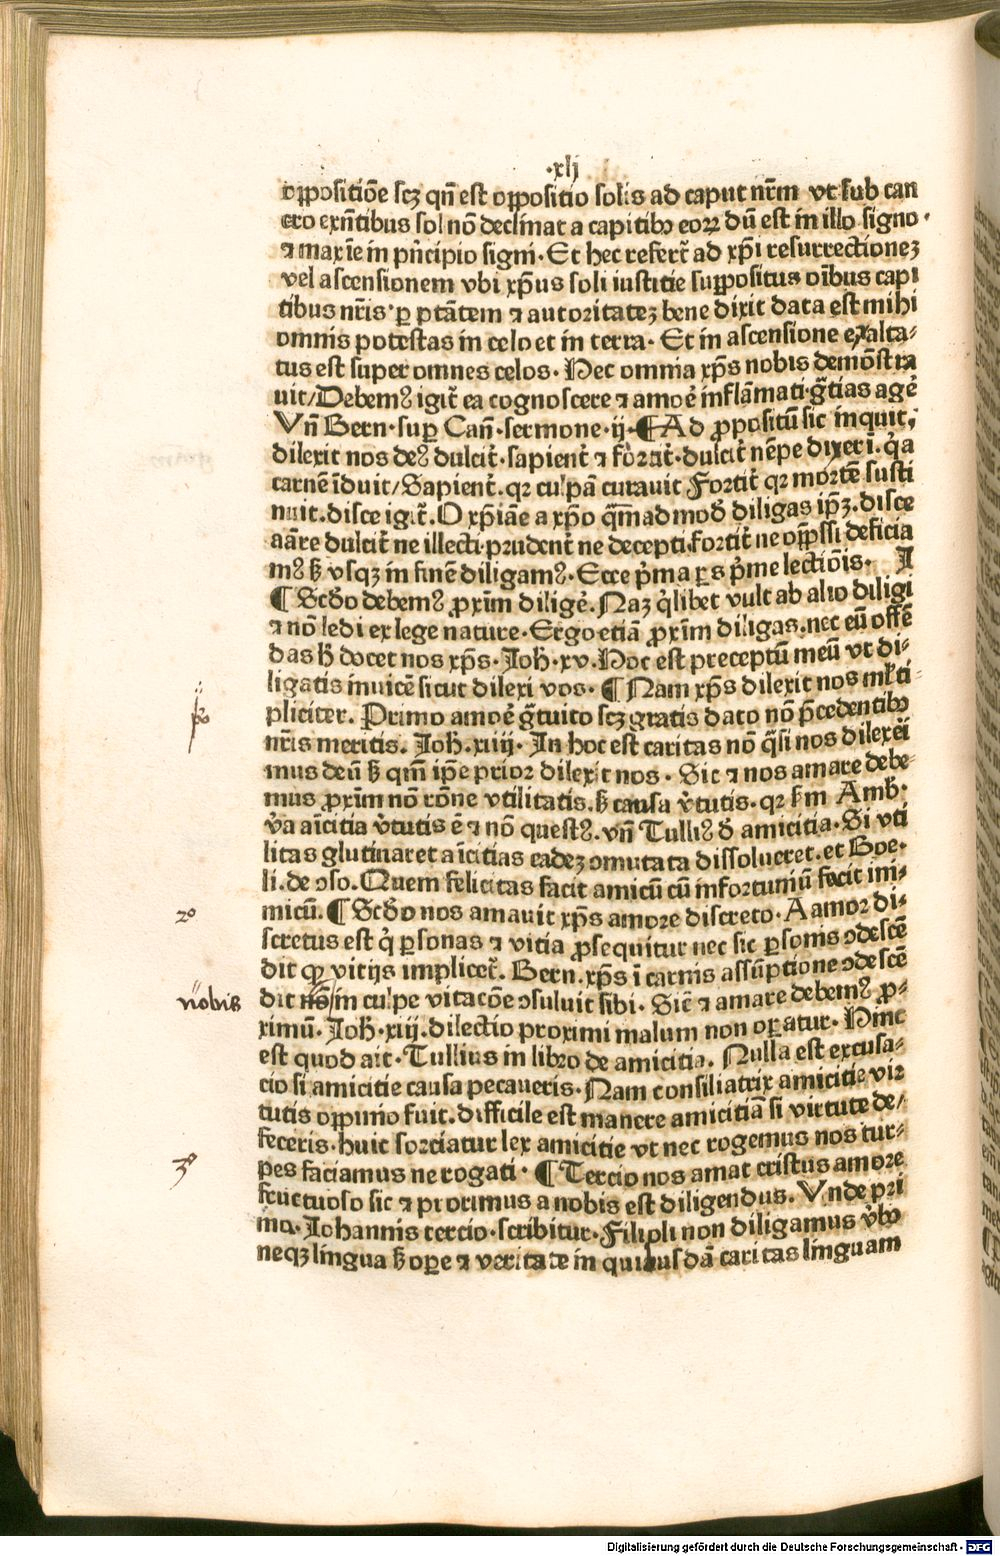 ·xlj
oꝓpositiōe scꝫ qn̄ est oꝓpositio solis ad caput nr̄m vt sub can
cro exn̄tibus sol nō declinat a capitibꝰ eoꝝ dū est in illo signo ·
⁊ maxīe in pn̄cipio signi · Et hec refert̄ ad xp̄i resurrectioneꝫ
vel ascensionem vbi xp̄us soli iustitie suꝓpositus oībus capi
tibus nr̄is ꝑ ptātem ⁊ autoritateꝫ bene dixit data est mihi
omnis potestas in celo et in terra · Et in ascensione exalta⸗
tus est super omnes celos · Hec omnia xp̄s nobis demōstra
uit/Debemꝰ igit̄ ea cognoscere ⁊ amoē inflāmati·gr̄tias agē
Vn̄ Bern · suꝑ Can̄ · sermone · ij · ¶ Ad ꝓpositū sic inquit;
dilexit nos deꝰ dulcit̄ · sapient̄ ⁊ fortit̄ · dulcit̄ nēpe dixeri · q̄a
carnē īduit/Sapient̄ · qꝛ culpā cutauit Fortit̄ qꝛ mortē susti
nuit · disce igit̄ · O xp̄iāne a xp̄o q̄madmoð diligas ip̄ꝫ · disce
aāre dulcit̄ ne illecti · prudent̄ ne decepti · fortit̄ ne oꝓpssi deficia
mꝰ ꝫ vsqꝫ in finē diligamꝰ · Ecce p̄ma ꝑs p̄me lectiōis · I
¶ Scðo debemꝰ ꝓxīm diligē · Naꝫ q̄libet vult ab alio diligi
⁊ nō ledi ex lege nature · Ergo etiā ꝓxīm diligas · nec eū offē
das ħ docet nos xp̄s · Joħ · xv · Hoc est preceptū meū vt di⸗
ligatis inuicē sicut dilexi vos · ¶ Nam xp̄s dilexit nos ml̄ti⸗
pliciter. Primo amoē gr̄tuito scꝫ gratis dato nō p̄cedentibꝰ
nr̄is meritis. Joħ. xiiij · In hoc est caritas nō q̄si nos dilexeī
mus deū ꝫ qm̄ ip̄e prior dilexit nos · Sic ⁊ nos amare debe⸗
mus ꝓxīm nō rōne vtilitatis. ꝫ causa v̄tutis · qꝛ ẜm Amƀ ·
v̄a aīcitia v̄tutis ē ⁊ nō questꝰ. vn̄ Tulliꝰ ð amicitia · Si vti
litas glutinaret aīcitias eadeꝫ ꝯmutata dissolueret · et Boe ·
li. de ꝯso. Quem felicitas facit amicū cū infortuniū facit ini⸗
micū. ¶ Scðo nos amauit xp̄s amore discreto · A amor di⸗
scretus est q̄ ꝑsonas ⁊ vitia ꝓsequitur nec sic ꝑsonis ꝯdescē
dit qꝫ vitijs implicet̄. Bern. xp̄s ī carnis assūptione ꝯdescē
dit nō in culpe vitacōe ꝯsuluit sibi · Sic̄ ⁊ amare debemꝰ ꝓ⸗
ximū. Joħ · xiij · dilectio proximi malum non oꝑatur · Hinc
est quod ait · Tullius in libro de amicitia. Nulla est excusa⸗
cio si amicitie causa pecaueris · Nam consiliatrix amicitie vir
tutis oꝓpinio fuit. difficile est manere amicitiā si virtute de⸗
feceris · huic sorciatur lex amicitie vt nec rogemus nos tur⸗
pes faciamus ne rogati · ¶ Tercio nos amat cristus amore
fructuoso sic ⁊ prorimus a nobis est diligendus. Vnde pri
mo. Johannis tercio · scribitur · Filioli non diligamus v̄bo
neqꝫ lingua ꝫ oꝑe ⁊ veritate in quibus dā caritas linguam
pº
2º
nobis
3º
Digitalisierung gefördert durch die Deutsche Forschungsgemeinschaft · DFG